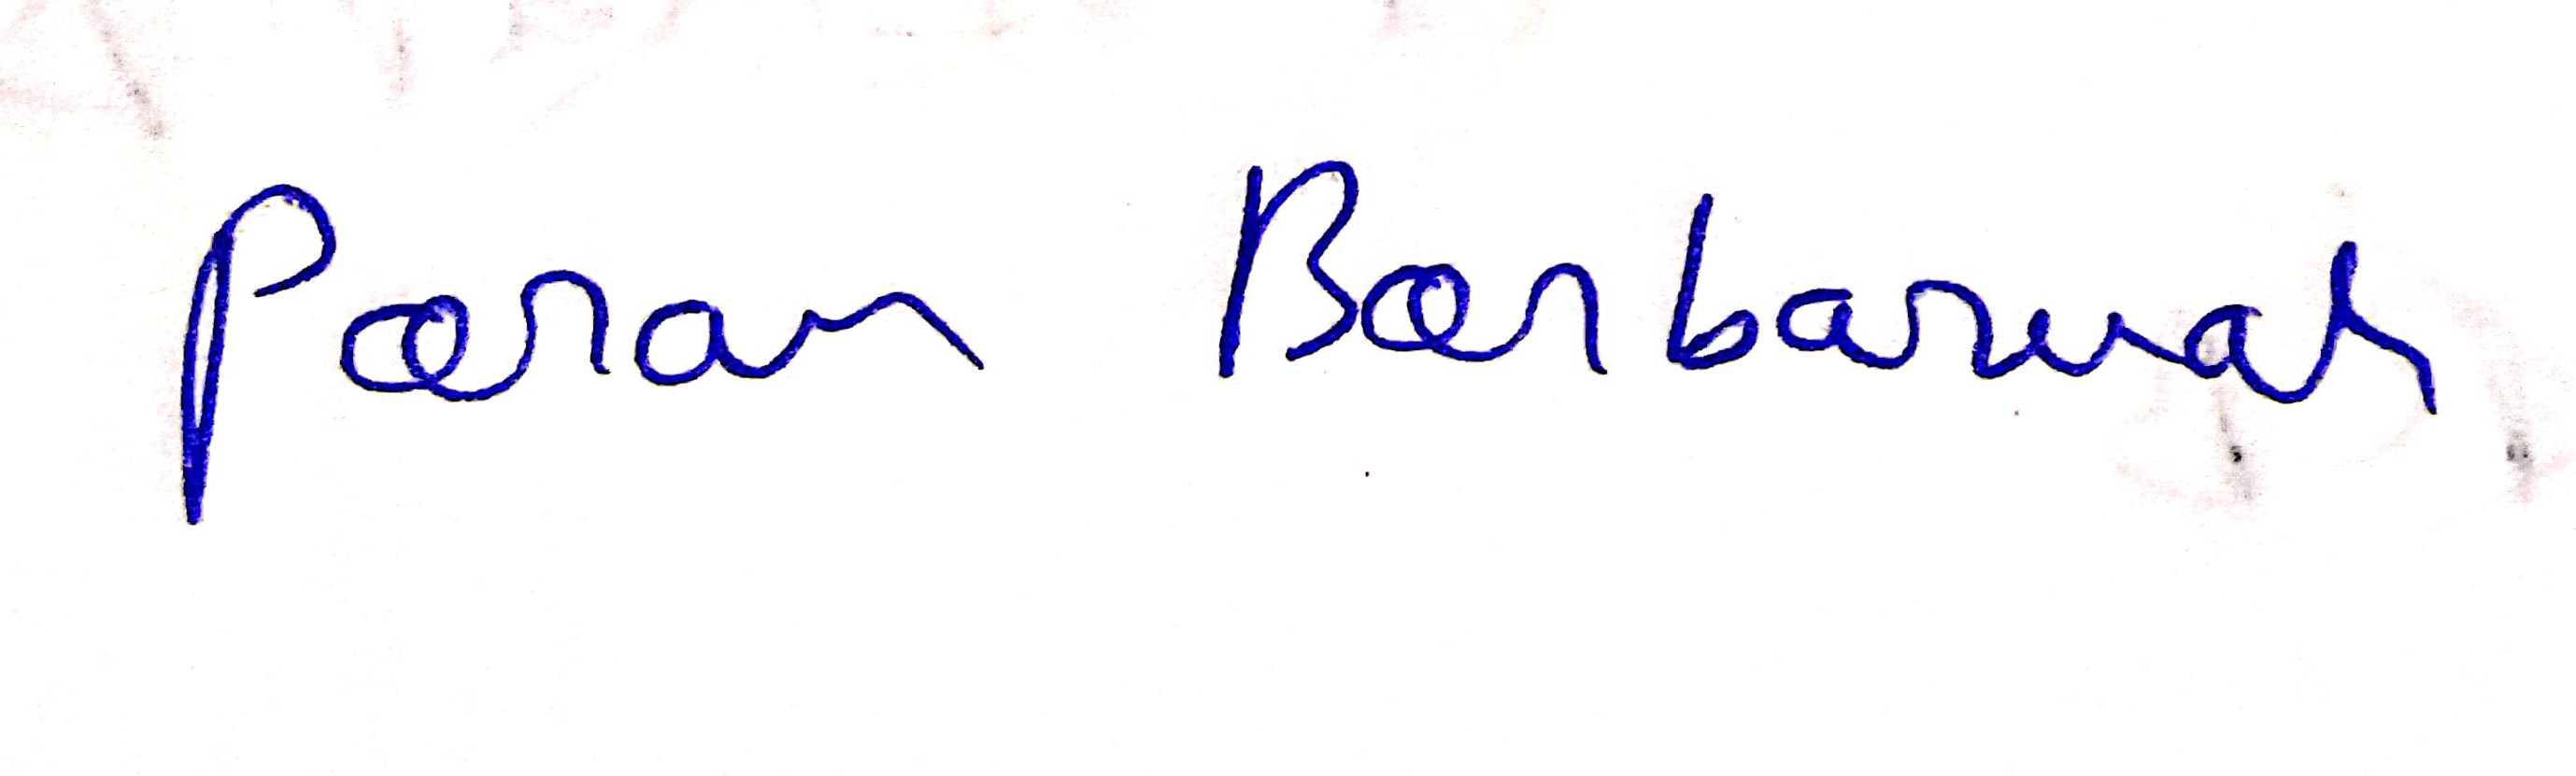 Paran Barbaruah